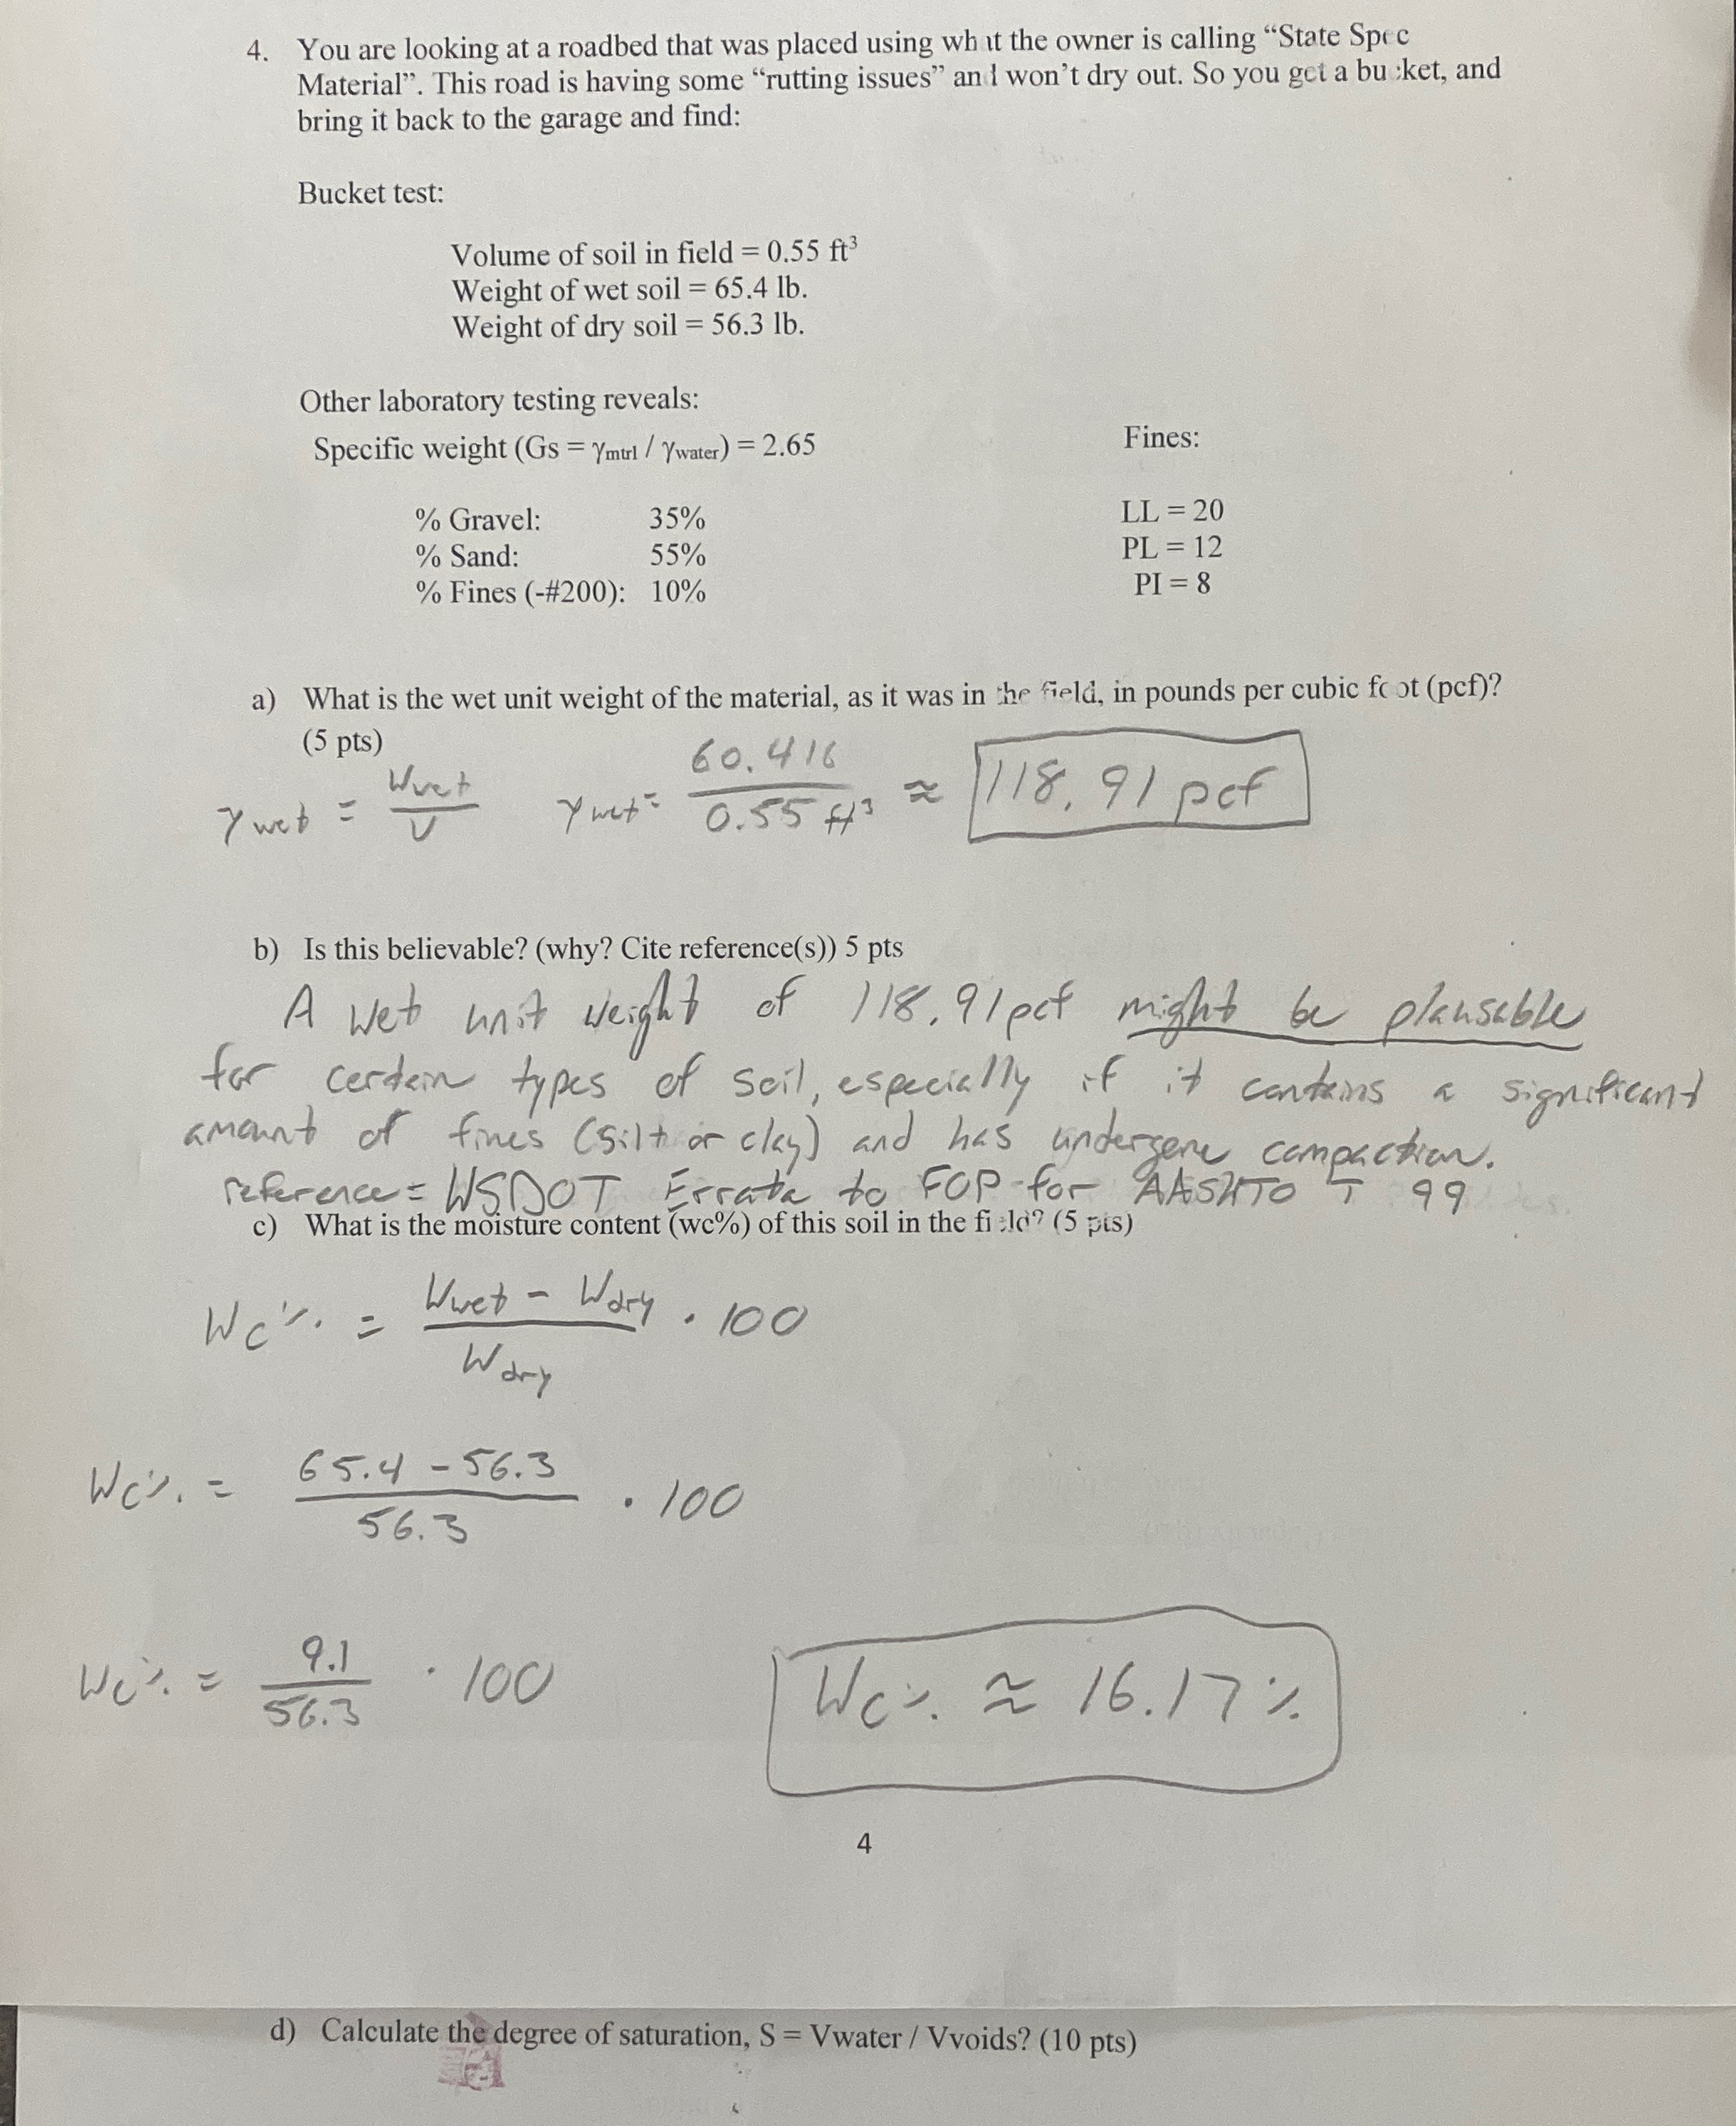 4. You are looking at a roadbed that was placed using what the owner is calling “State Spec
Material”. This road is having some “rutting issues” and won’t dry out. So you get a bucket, and
bring it back to the garage and find:
Bucket test:
Volume of soil in field = 0.55 ft³
Weight of wet soil = 65.4 lb.
Weight of dry soil = 56.3 lb.
Other laboratory testing reveals:
Specific weight (Gs = γmtrl / γwater) = 2.65
Fines:
% Gravel: 35%
LL = 20
% Sand: 55%
PL = 12
% Fines (-#200): 10%
PI = 8
a) What is the wet unit weight of the material, as it was in the field, in pounds per cubic foot (pcf)?
(5 pts)
γwet = Wwet / V γwet = 60.416 / 0.55 ft³ ≈ 118.91 pcf
b) Is this believable? (why? Cite reference(s)) 5 pts
A wet unit weight of 118.91 pcf might be plausable
for certain types of soil, especially if it contains a significant
amount of fines (silt or clay) and has undergone compaction.
reference = WSDOT Errata to FOP for AASHTO T 99
c) What is the moisture content (wc%) of this soil in the field? (5 pts)
Wc% = Wwet - Wdry / Wdry · 100
Wc% = 65.4 - 56.3 / 56.3 · 100
Wc% = 9.1 / 56.3 · 100
Wc% ≈ 16.17%
4
d) Calculate the degree of saturation, S = Vwater / Vvoids? (10 pts)